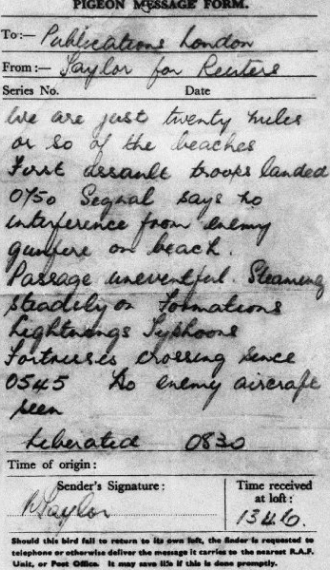 PIGEON MESSAGE FORM.
To:— Publications London
From:— Taylor for Reuters
Series No. Date
We are just twenty miles
or so of the beaches
First assault troops landed
0750 Segnal says no
interference from enemy
gunfire on beach.
Passage uneventful. Steaming
steadily on Formations
Lightnings Typhoons
Fortresses crossing sence
0545 No enemy aircraft
seen
Liberated 0830
Time of origin:
Sender's Signature:
Time received
at loft:
Taylor
1346.
Should this bird fail to return to its own loft, the finder is requested to
telephone or otherwise deliver the message it carries to the nearest R.A.F.
Unit, or Post Office. It may save life if this is done promptly.